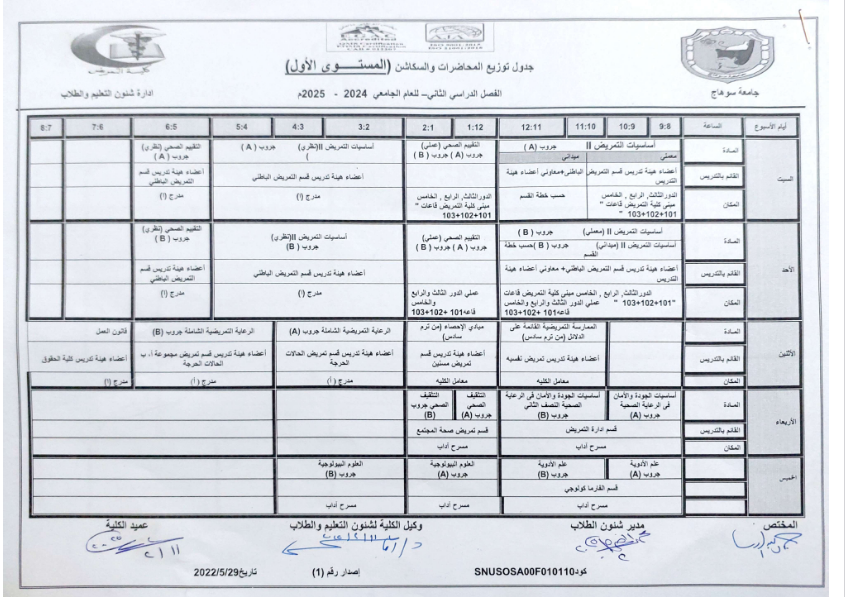 كلية التمريض
ادارة شئون التعليم والطلاب
جدول توزيع المحاضرات والسكاشن (المستوى الأول)
الفصل الدراسي الثاني– للعام الجامعي 2024 - 2025م
جامعة سوهاج
أيام الأسبوع الساعة 9:8 10:9 11:10 12:11 1:12 2:1 3:2 4:3 5:4 6:5 7:6 8:7
السبت
المادة
أساسيات التمريض II جروب (A)
معملي ميداني
التقييم الصحي (عملي)
جروب (A) جروب (B)
أساسيات التمريض II(نظري) جروب (A)
التقييم الصحي (نظري)
جروب (A)
القائم بالتدريس
أعضاء هيئة تدريس قسم التمريض الباطني+معاوني أعضاء هيئة التدريس
أعضاء هيئة تدريس قسم التمريض الباطني
أعضاء هيئة تدريس قسم التمريض الباطني
المكان
الدورالثالث, الرابع , الخامس
مبنى كلية التمريض قاعات "
101+102+103 "
حسب خطة القسم
الدورالثالث, الرابع , الخامس
مبنى كلية التمريض قاعات "
101+102+103
مدرج (ا)
مدرج (ا)
الأحد
المادة
أساسيات التمريض II (معملي) جروب (B)
أساسيات التمريض II (ميداني) جروب (B) حسب خطة القسم
التقييم الصحي (عملي)
جروب (A) جروب (B)
أساسيات التمريض II(نظري)
جروب (B)
التقييم الصحي (نظري)
جروب (B)
القائم بالتدريس
أعضاء هيئة تدريس قسم التمريض الباطني+ معاوني أعضاء هيئة التدريس
أعضاء هيئة تدريس قسم التمريض الباطني
أعضاء هيئة تدريس قسم التمريض الباطني
المكان
الدورالثالث, الرابع , الخامس مبنى كلية التمريض قاعات
"101+102+103 " عملي الدور الثالث والرابع والخامس
قاعه101 +102 +103
عملي الدور الثالث والرابع والخامس
قاعه101 +102 +103
مدرج (ا)
مدرج (ا)
الأثنين
المادة
الممارسة التمريضية القائمة على الدلائل (من ترم سادس)
مبادي الإحصاء (من ترم سادس)
الرعاية التمريضية الشاملة جروب (A)
الرعاية التمريضية الشاملة جروب (B)
قانون العمل
القائم بالتدريس
أعضاء هيئة تدريس تمريض نفسيه
أعضاء هيئة تدريس قسم تمريض مسنين
أعضاء هيئة تدريس قسم تمريض الحالات الحرجة
أعضاء هيئة تدريس قسم تمريض مجموعة أ، ب الحالات الحرجة
أعضاء هيئة تدريس كلية الحقوق
المكان
معامل الكليه
معامل الكليه
مدرج (أ)
مدرج (أ)
مدرج (ا)
الأربعاء
المادة
أساسيات الجودة والأمان فى الرعاية الصحية جروب (A)
أساسيات الجودة والأمان فى الرعاية الصحية النصف الثاني جروب (B)
التثقيف الصحي جروب (A)
التثقيف الصحي جروب (B)
القائم بالتدريس
قسم ادارة التمريض
قسم تمريض صحة المجتمع
المكان
مسرح آداب
مسرح آداب
الخميس
علم الأدوية جروب (A)
علم الأدوية جروب (B)
العلوم البيولوجية جروب (A)
العلوم البيولوجية جروب (B)
قسم الفارما كولوجي
مسرح آداب
مسرح آداب
مسرح آداب
المختص
مدير شئون الطلاب
وكيل الكلية لشئون التعليم والطلاب
عميد الكلية
كودSNUSOSA00F010110
إصدار رقم (1)
تاريخ2022/5/29